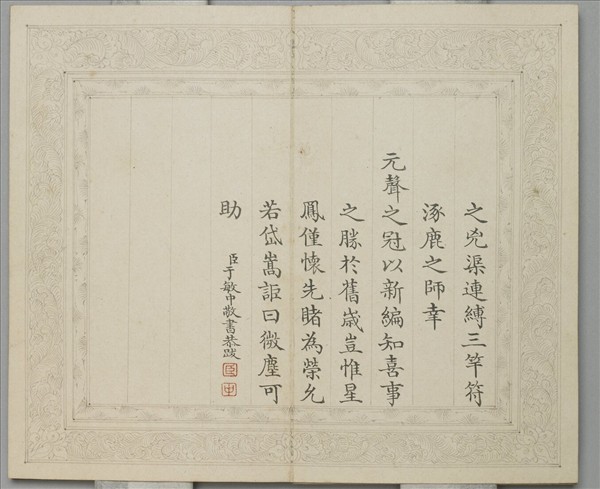 之兇渠連縛三竿符
涿鹿之師幸
元聲之冠以新編知喜事
之勝於舊歲豈惟星
鳳僅懷先睹為榮允
若岱嵩詎曰微塵可
助
臣于敏中敬書恭跋
臣
中